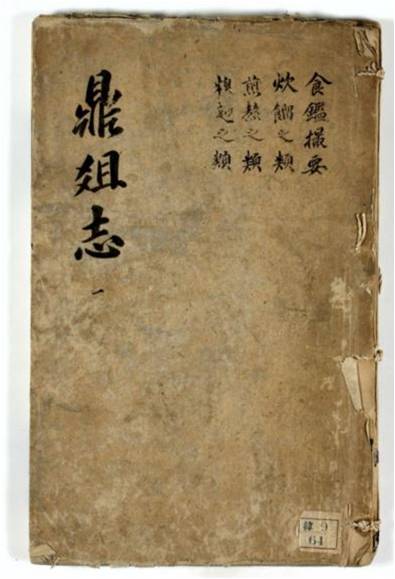 食鑑撮要
炊餾之類
煎熬之類
糗麫之類
鼎爼志
一
韓 9
64